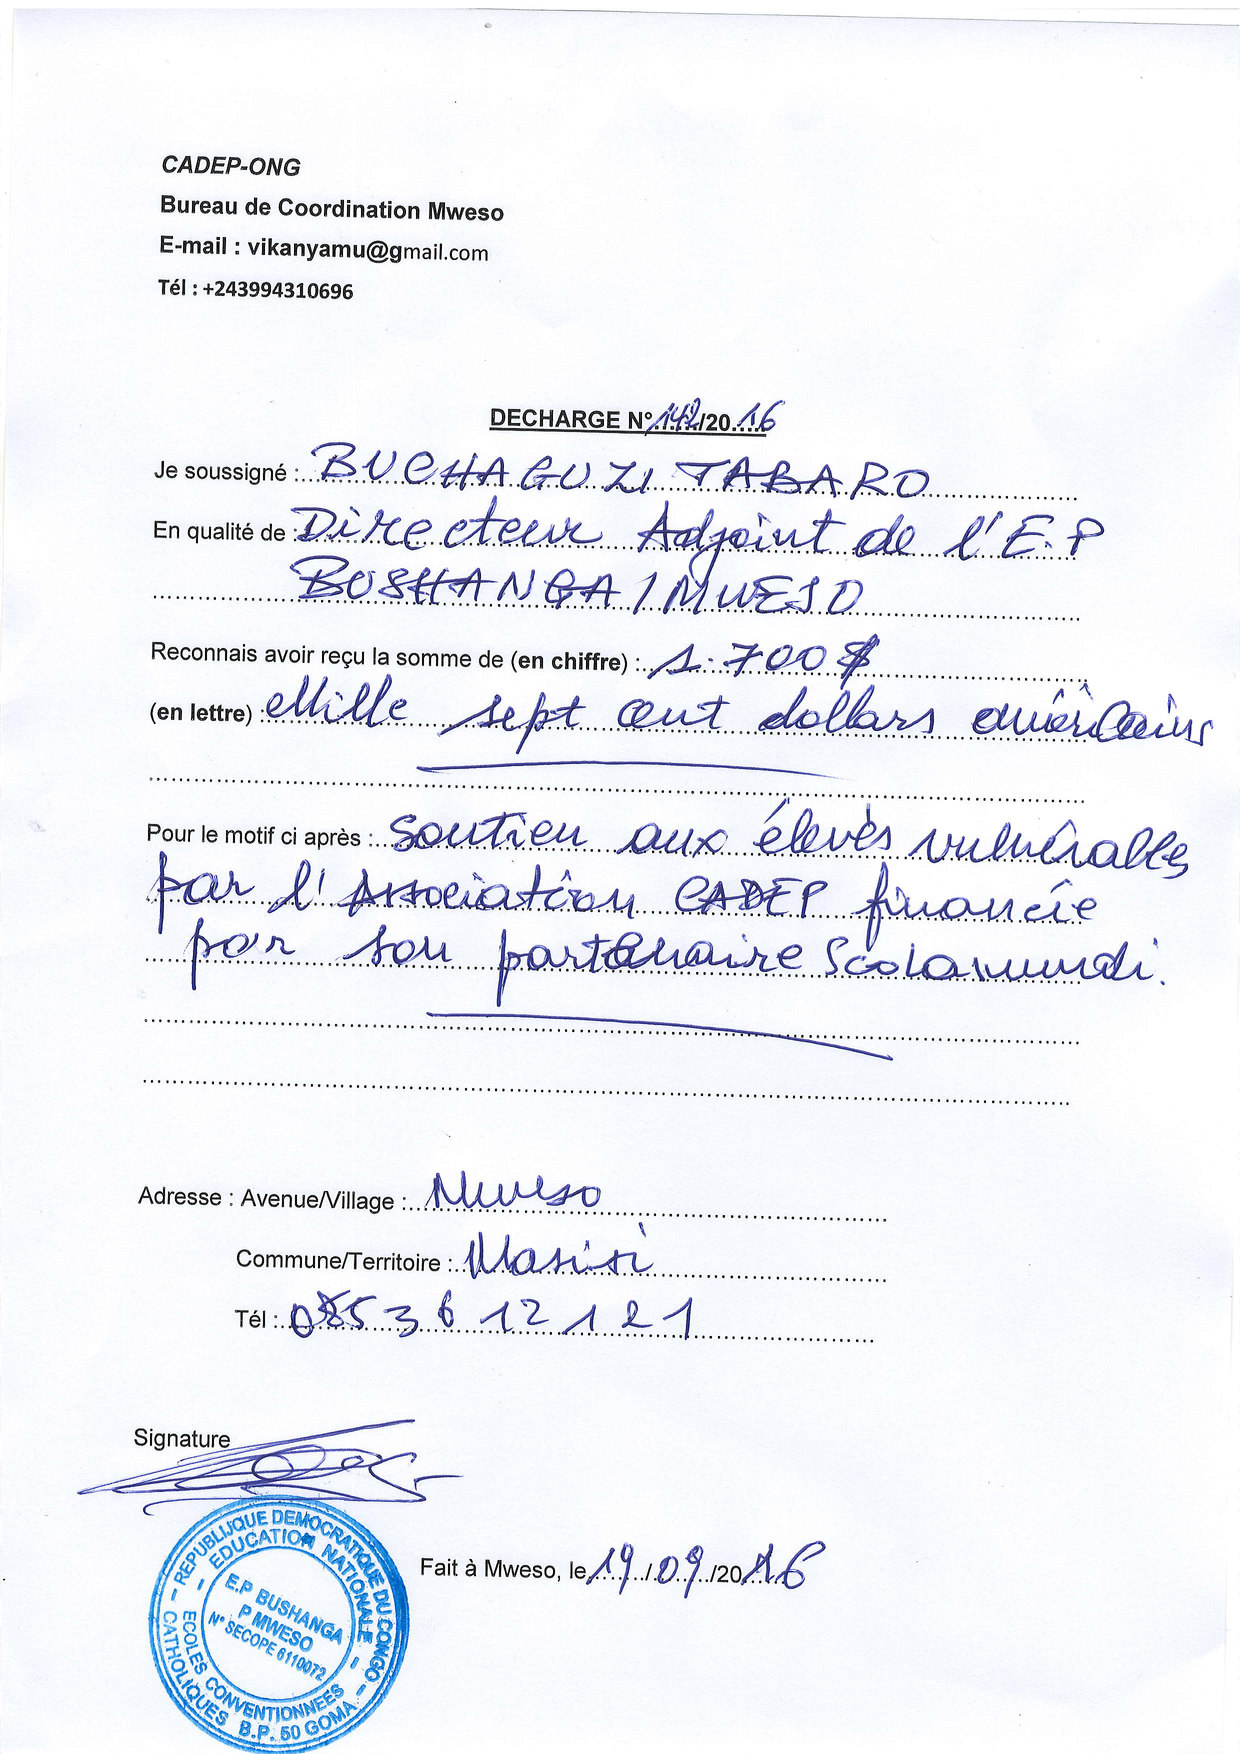 CADEP-ONG
Bureau de Coordination Mweso
E-mail : vikanyamu@gmail.com
Tél : +243994310696
DECHARGE N°142/2016
Je soussigné : BUCHAGUZI TABARO
En qualité de : Directeur Adjoint de l'E.P
BUSHANGA / MWESO
Reconnais avoir reçu la somme de (en chiffre) : 1.700 $
(en lettre) : Mille sept cent dollars américains
Pour le motif ci après : Soutien aux élevès vulnérables
par l'Association CADEP financée
par son partenaire Scolamundi.
Adresse : Avenue/Village : Mweso
Commune/Territoire : Masisi
Tél : 0853612121
Signature
Fait à Mweso, le 19/09/2016
REPUBLIQUE DEMOCRATIQUE DU CONGO
EDUCATION NATIONALE
E.P BUSHANGA
P MWESO
N° SECOPE 6110072
ECOLES CONVENTIONNEES
CATHOLIQUES B.P. 50 GOMA